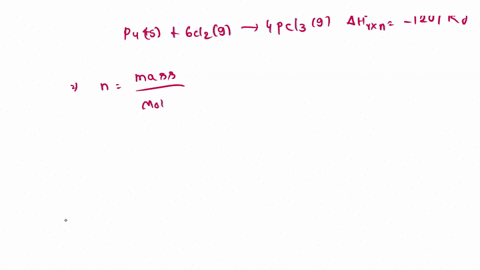 P4(s) + 6Cl2(g) → 4PCl3(g) ΔHrxn = -1207 KJ
2) n = mass
Mol